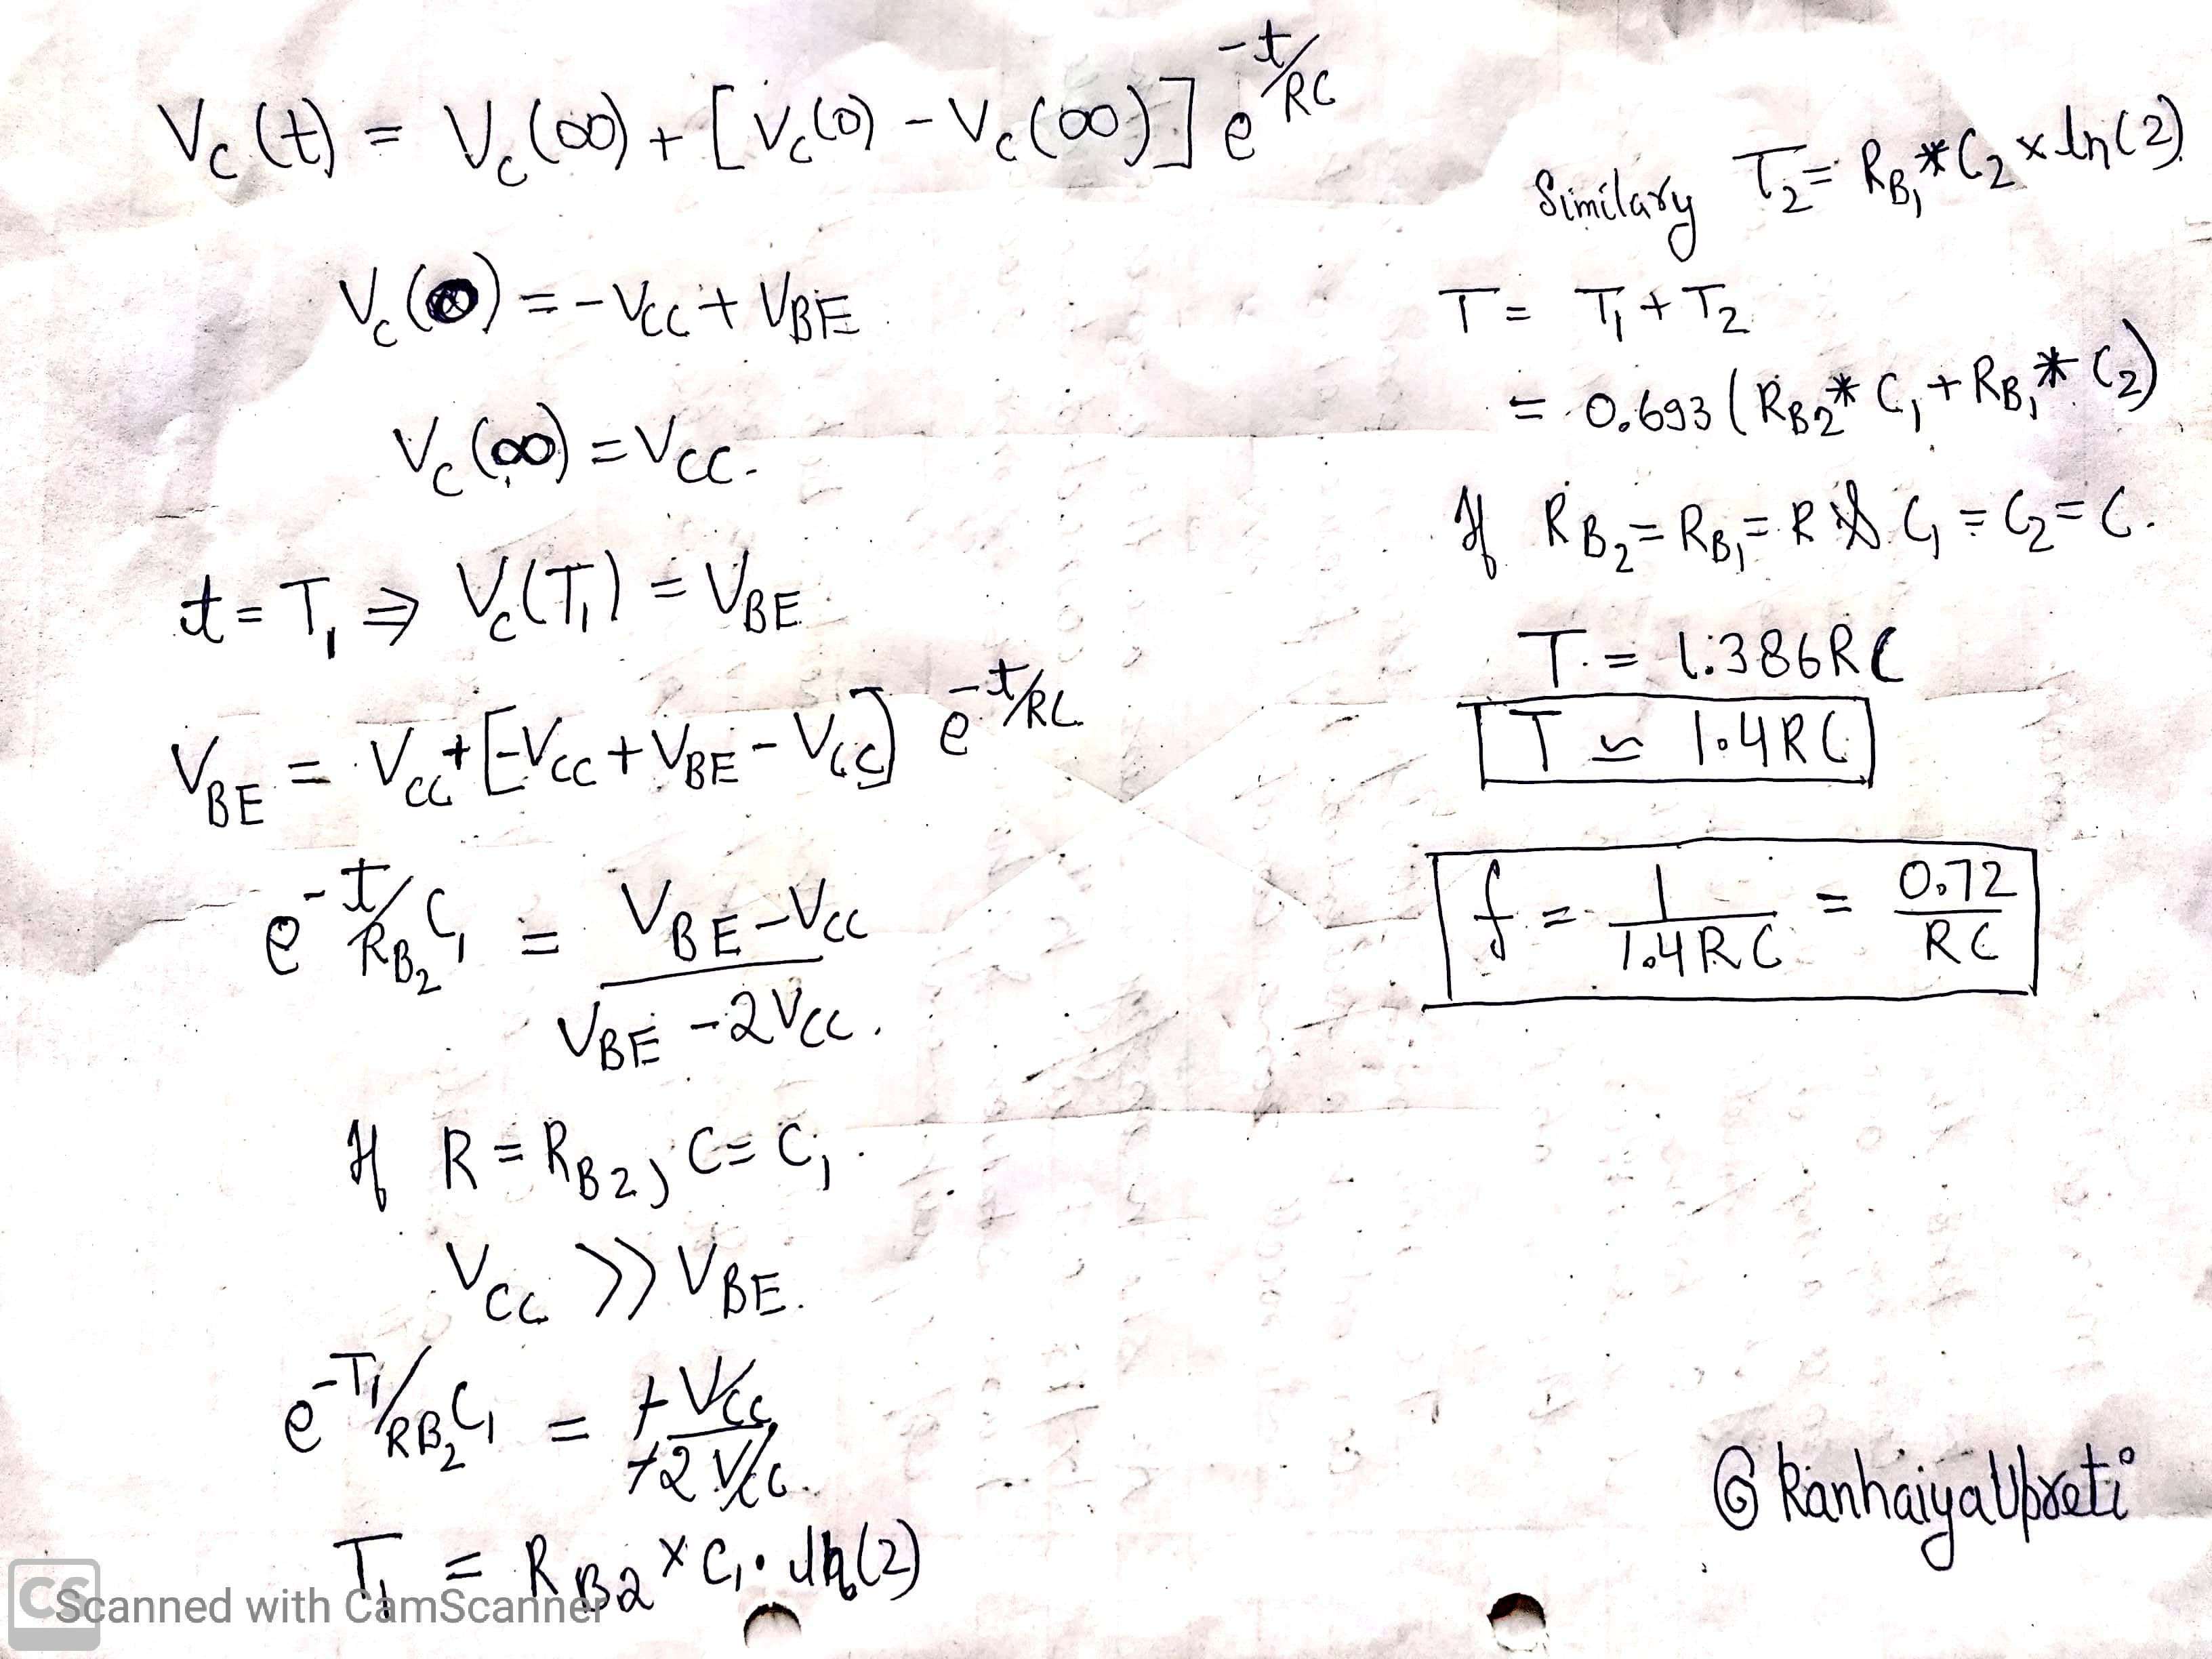 Vc(t) = Vc(∞) + [Vc(0) - Vc(∞)] e^-t/RC
Vc(0) = -Vcc + VBE
Vc(∞) = Vcc.
t = T1 ⇒ Vc(T1) = VBE
VBE = Vcc + [-Vcc + VBE - Vcc] e^-t/RC
e^-t/RB2C1 = VBE - Vcc
VBE - 2Vcc.
If R = RB2, C = C1.
Vcc >> VBE.
e^-T1/RB2C1 = +Vcc
+2Vcc.
T1 = RB2 × C1 · ln(2)
Similary T2 = RB1 * C2 × ln(2)
T = T1 + T2
= 0.693 (RB2 * C1 + RB1 * C2)
If RB2 = RB1 = R & C1 = C2 = C.
T = 1.386RC
T ≃ 1.4RC
f = 1/1.4RC = 0.72/RC
@KanhaiyaUpreti
CS
Scanned with CamScanner